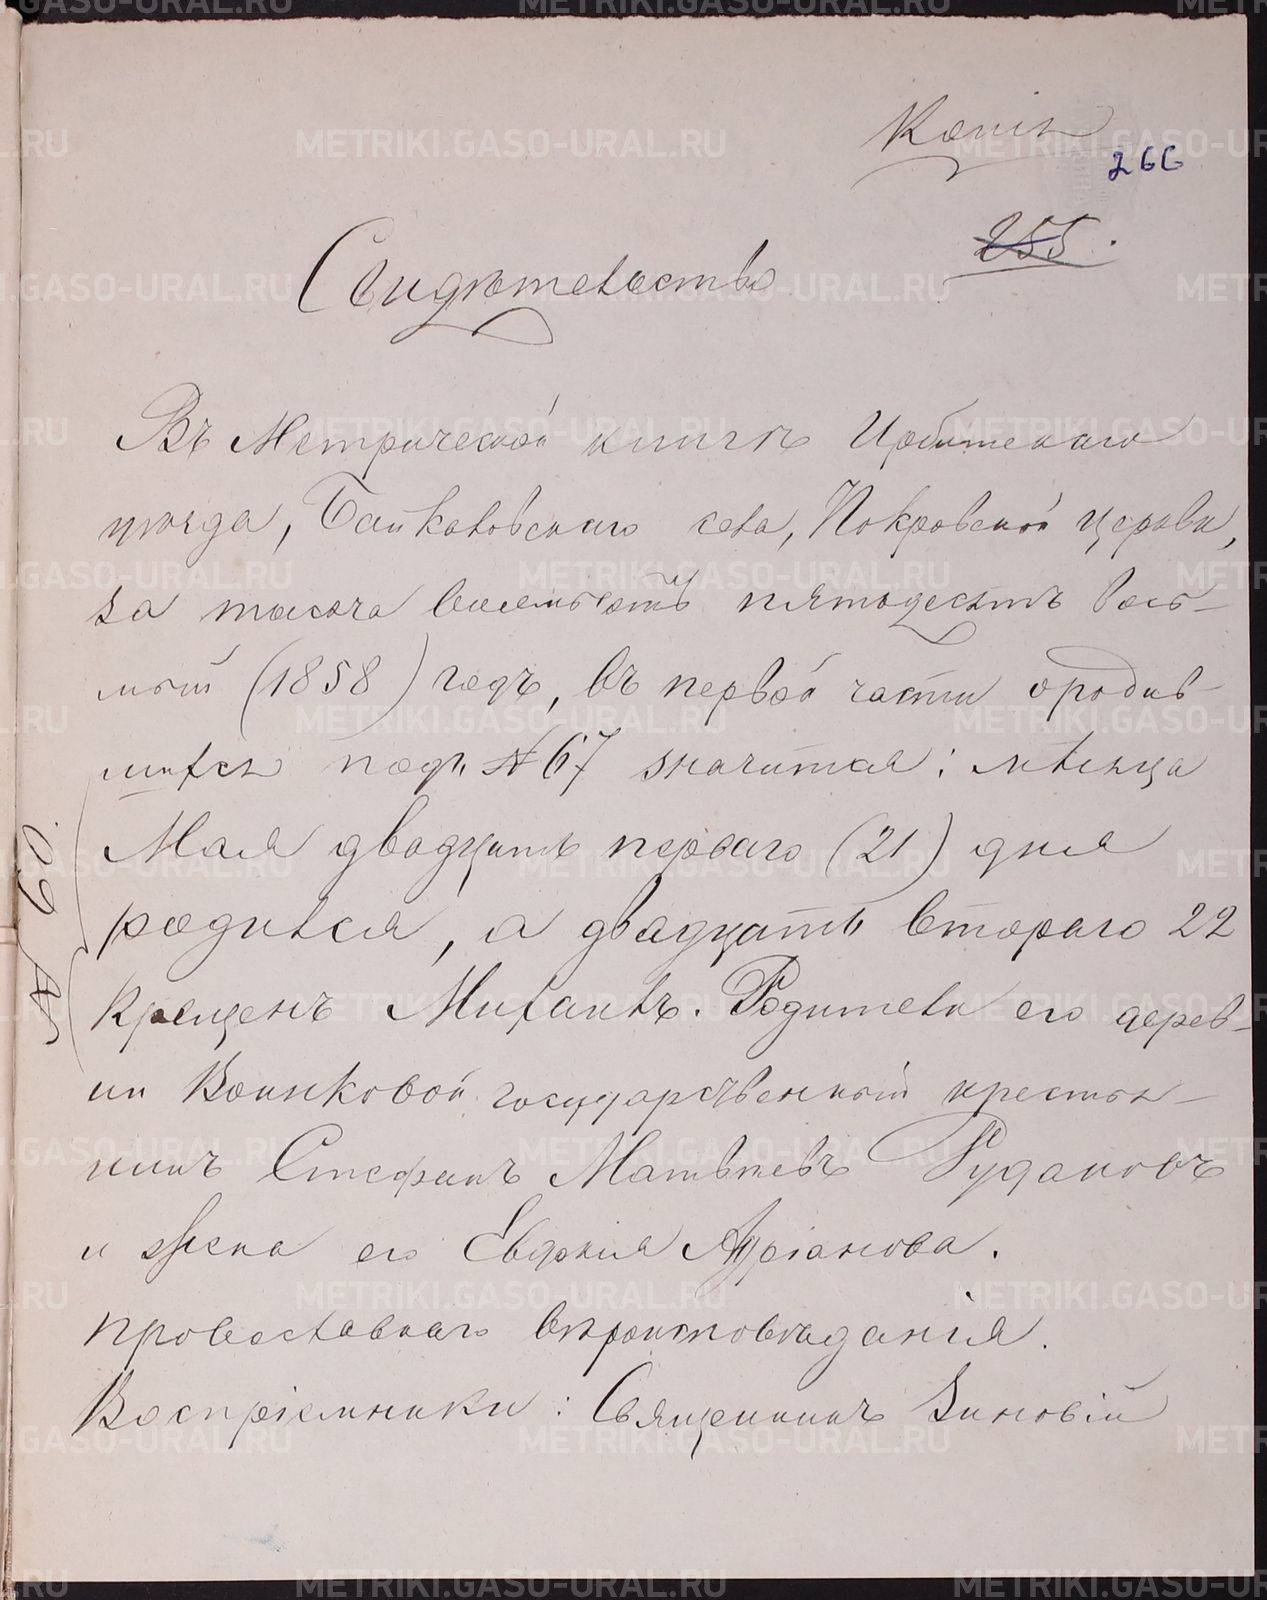 Копія
266
255.
Свидѣтельство
Въ Метрической книгѣ Ирбитскаго
уѣзда, Байкаловскаго села, Покровской церкви,
за тысяча восемьсотъ пятьдесятъ вось-
мый (1858) годъ, въ первой части о родив-
шихся подъ № 67 значится: мѣсяца
Мая двадцать перваго (21) дня
родился, а двадцать втораго 22
крещенъ Михаилъ. Родители его дерев-
ни Воинковой государственный крестья-
нинъ Стефанъ Матвѣевъ Рудаковъ
и жена его Евдокія Адріанова.
православнаго вѣроисповѣданія.
Воспріемники: Священникъ Зиновій
№ 60.
METRIKI.GASO-URAL.RU